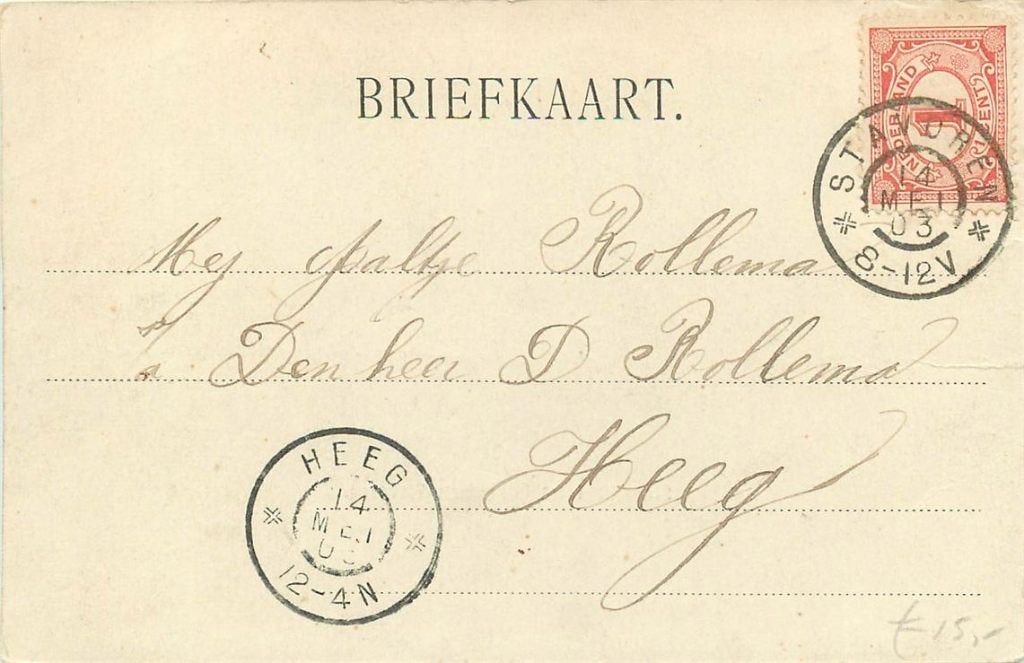 BRIEFKAART.
NEDERLAND 1 CENT
STAVOREN
14
MEI
03
8-12V
Mej Spaltje Rollema
a/ Den heer D Rollema
Heeg
HEEG
14
MEI
03
12-4N
€ 15,-